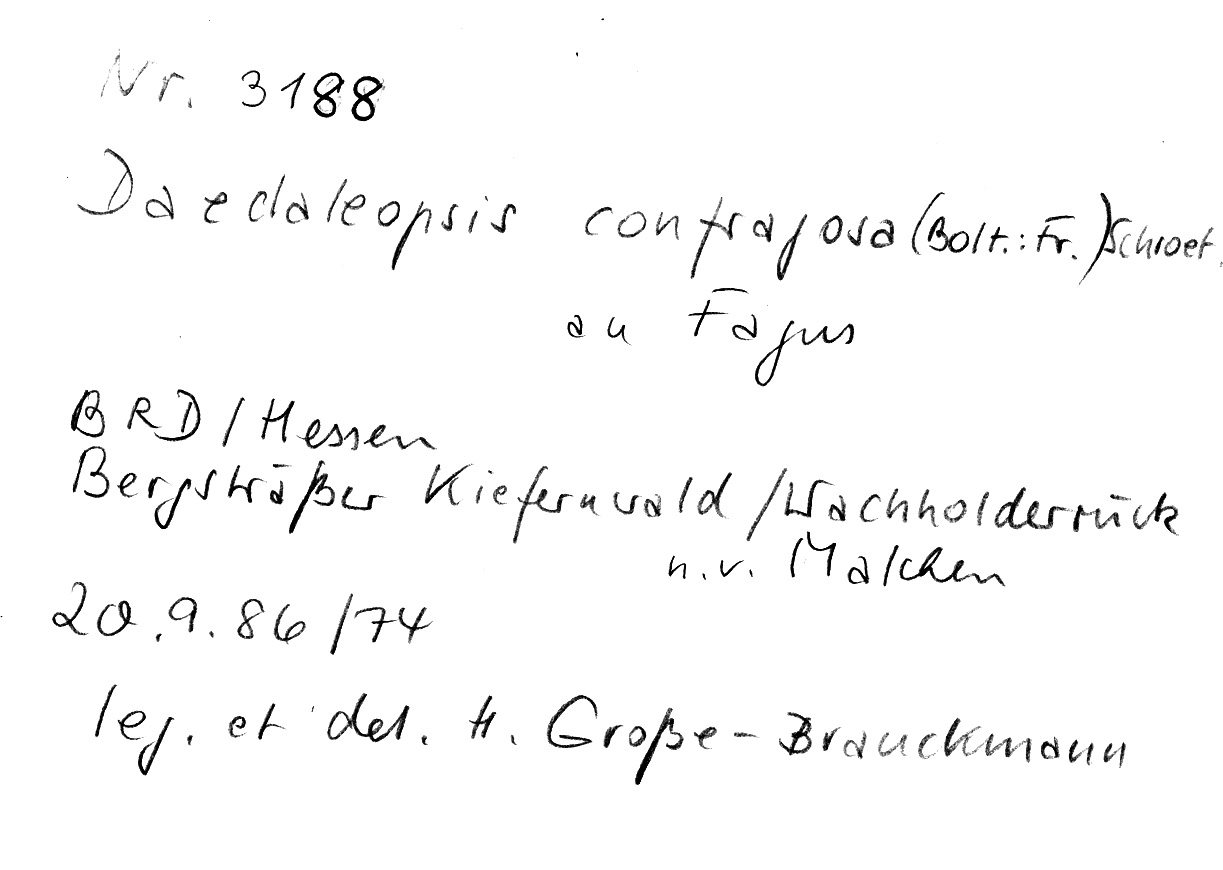 Nr. 3188
Daedaleopsis confragosa (Bolt.: Fr.) Schroet.
an Fagus
BRD / Hessen
Bergsträßer Kiefernwald / Wachholderrück
n.v. Malchen
20.9.86 / 74
leg. et det. H. Große-Brauckmann